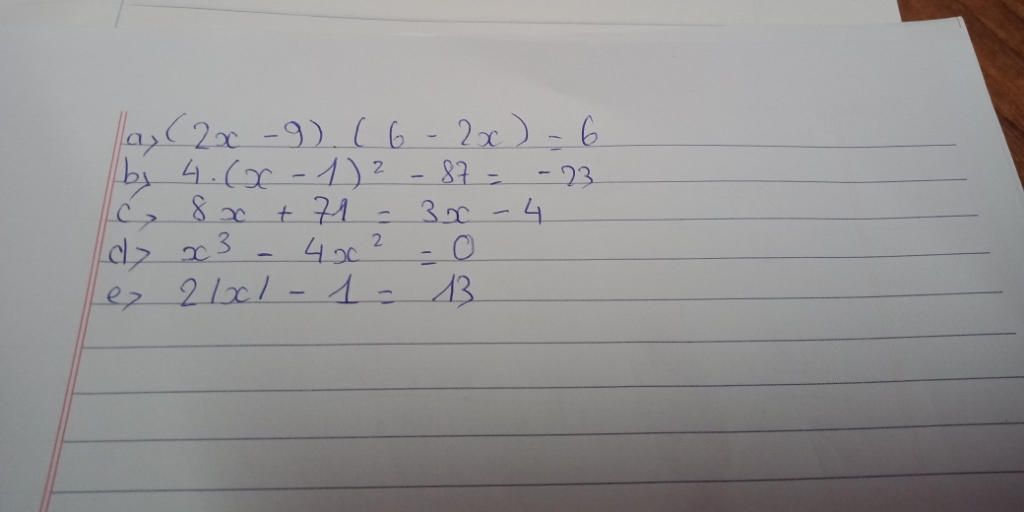 a> (2x - 9).(6 - 2x) = 6
b> 4.(x - 1)² - 87 = -23
c> 8x + 71 = 3x - 4
d> x³ - 4x² = 0
e> 2|x| - 1 = 13